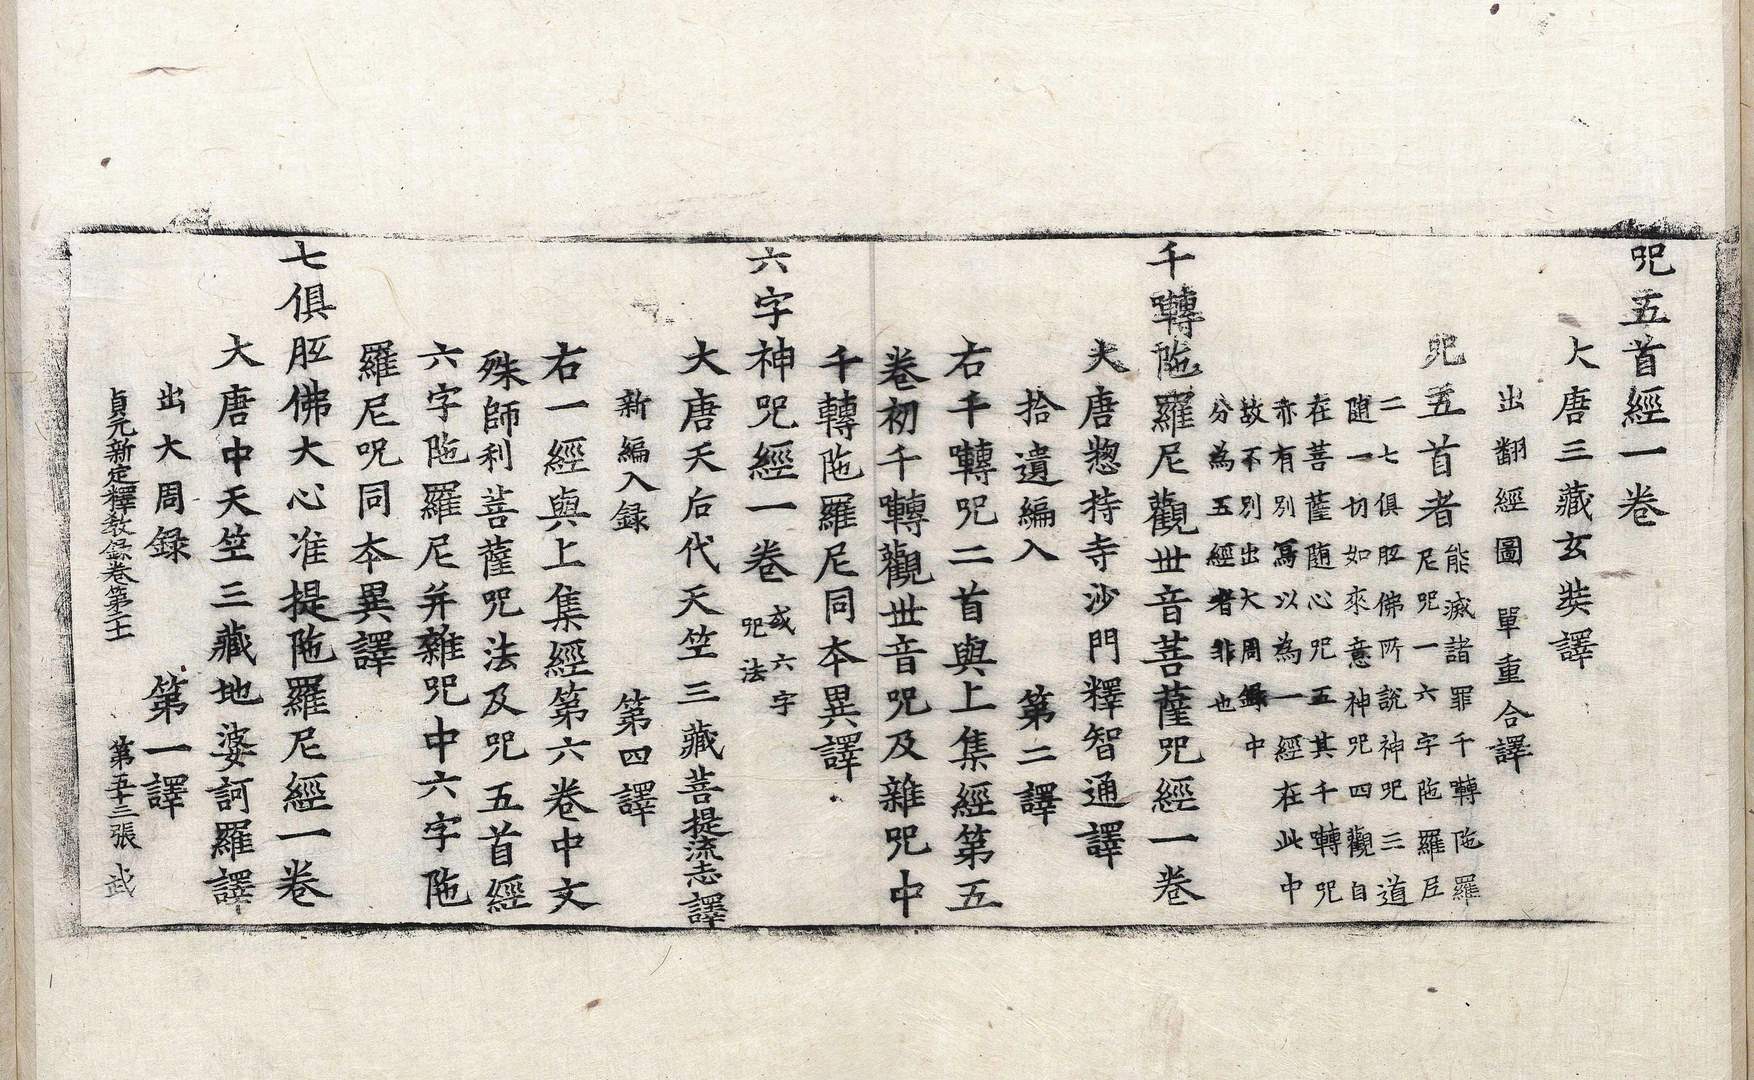 呪五首經一卷
大唐三藏玄奘譯
出翻經圖 單重合譯
呪五首者 能滅諸罪千囀陁羅
尼呪一六字陁羅尼
二七俱胝佛所說神呪三道
隨一切如來意神呪四觀自
在菩薩隨心呪五其千囀呪
亦有別寫以為一經在此中
故不別出大周錄中
分為五經者非也
千囀陁羅尼觀世音菩薩呪經一卷
大唐揔持寺沙門釋智通譯
拾遺編入 第二譯
右千囀呪二首與上集經第五
卷初千囀觀世音呪及雜呪中
千轉陁羅尼同本異譯
六字神呪經一卷 或六字
呪法
大唐天后代天竺三藏菩提流志譯
新編入録 第四譯
右一經與上集經第六卷中文
殊師利菩薩呪法及呪五首經
六字陁羅尼并雜呪中六字陁
羅尼呪同本異譯
七俱胝佛大心准提陁羅尼經一卷
大唐中天竺三藏地婆訶羅譯
出大周録 第一譯
貞元新定釋教録卷第二十二 第五十三張 武